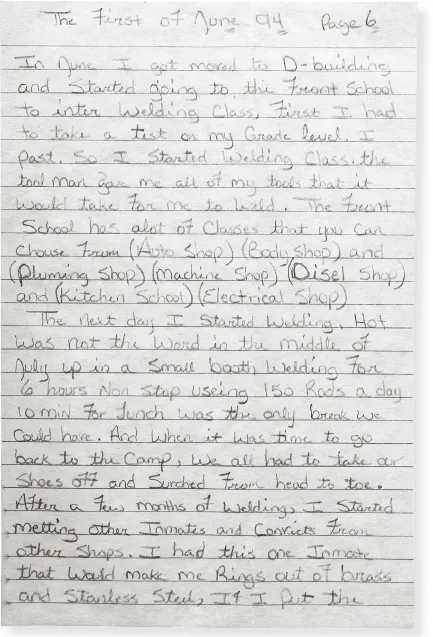 The First of June 94 Page 6
In June I got moved to D-building
and Started going to the Front School
to inter Welding Class, First I had
to take a test on my Grade level. I
Past. So I Started Welding Class. the
tool man gave me all of my tools that it
would take For me to Weld. The Front
School has alot of Classes that you Can
Chouse From (Auto Shop) (Body shop) and
(Pluming Shop) (Machine Shop) (Disel Shop)
and (Kitchen School) (Electrical Shop)
The next day I Started Welding. Hot
was not the word in the middle of
July up in a Small booth Welding For
6 hours Non Stop Useing 150 Rods a day
10 min For Lunch was the only break we
Could have. And When it was time to go
back to the Camp, we all had to take our
Shoes off and Surched From head to toe.
After a Few months of Weldings I Started
metting other Inmates and Convicts From
other Shops. I had this one Inmate
that would make me Rings out of brass
and Stanless Steel, If I Put the